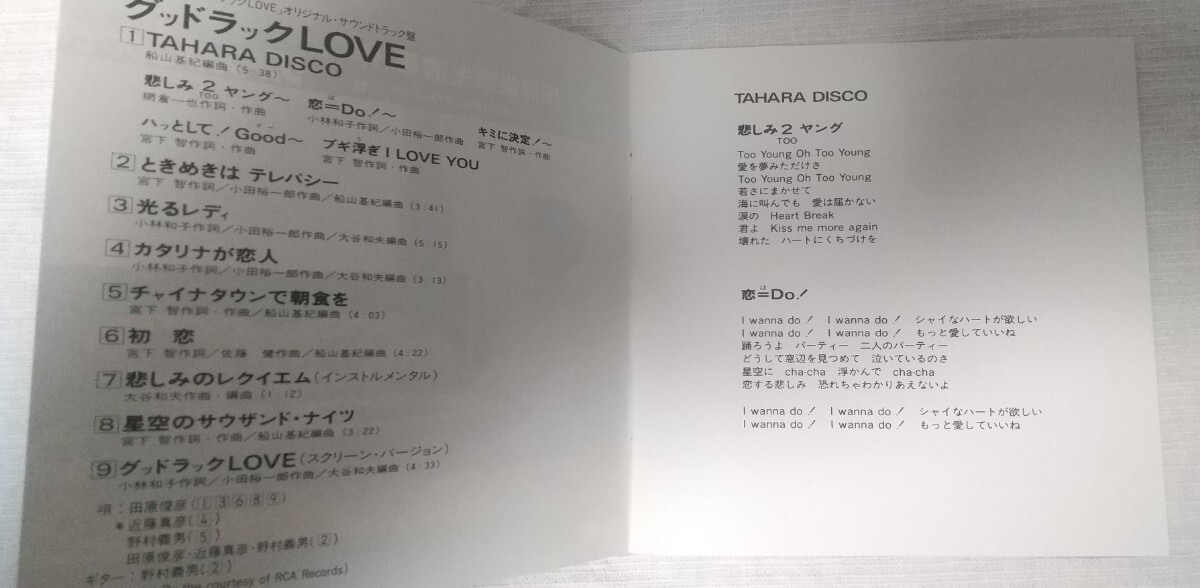 ックLOVE」オリジナル・サウンドトラック盤
グッドラックLOVE
1 TAHARA DISCO
船山基紀編曲 (5:38)
悲しみ2ヤング〜
TOO
網倉一也作詞・作曲
恋=Do!〜
は
小林和子作詞/小田裕一郎作曲
キミに決定!〜
宮下 智作詞・作曲
ハッとして!Good〜
グー
宮下 智作詞・作曲
ブギ浮ぎ I LOVE YOU
宮下 智作詞・作曲
2 ときめきは テレパシー
宮下 智作詞/小田裕一郎作曲/船山基紀編曲 (3:41)
3 光るレディ
小林和子作詞/小田裕一郎作曲/大谷和夫編曲 (5:15)
4 カタリナが恋人
小林和子作詞/小田裕一郎作曲/大谷和夫編曲 (3:13)
5 チャイナタウンで朝食を
宮下 智作詞・作曲/船山基紀編曲 (4:03)
6 初 恋
宮下 智作詞/佐藤 健作曲/船山基紀編曲 (4:22)
7 悲しみのレクイエム (インストルメンタル)
大谷和夫作曲・編曲 (1:12)
8 星空のサウザンド・ナイツ
宮下 智作詞・作曲/船山基紀編曲 (3:22)
9 グッドラックLOVE (スクリーン・バージョン)
小林和子作詞/小田裕一郎作曲/大谷和夫編曲 (4:33)
唄:田原俊彦 (1 3 6 8 9)
*近藤真彦 (4)
野村義男 (5)
田原俊彦・近藤真彦・野村義男 (2)
ギター:野村義男 (2)
the courtesy of RCA Records)
TAHARA DISCO
悲しみ2 ヤング
TOO
Too Young Oh Too Young
愛を夢みただけさ
Too Young Oh Too Young
若さにまかせて
海に叫んでも 愛は届かない
涙の Heart Break
君よ Kiss me more again
壊れた ハートにくちづけを
恋=Do!
は
I wanna do! I wanna do! シャイなハートが欲しい
I wanna do! I wanna do! もっと愛していいね
踊ろうよ パーティー 二人のパーティー
どうして窓辺を見つめて 泣いているのさ
星空に cha-cha 浮かんで cha-cha
恋する悲しみ 恐れちゃわかりあえないよ
I wanna do! I wanna do! シャイなハートが欲しい
I wanna do! I wanna do! もっと愛していいね